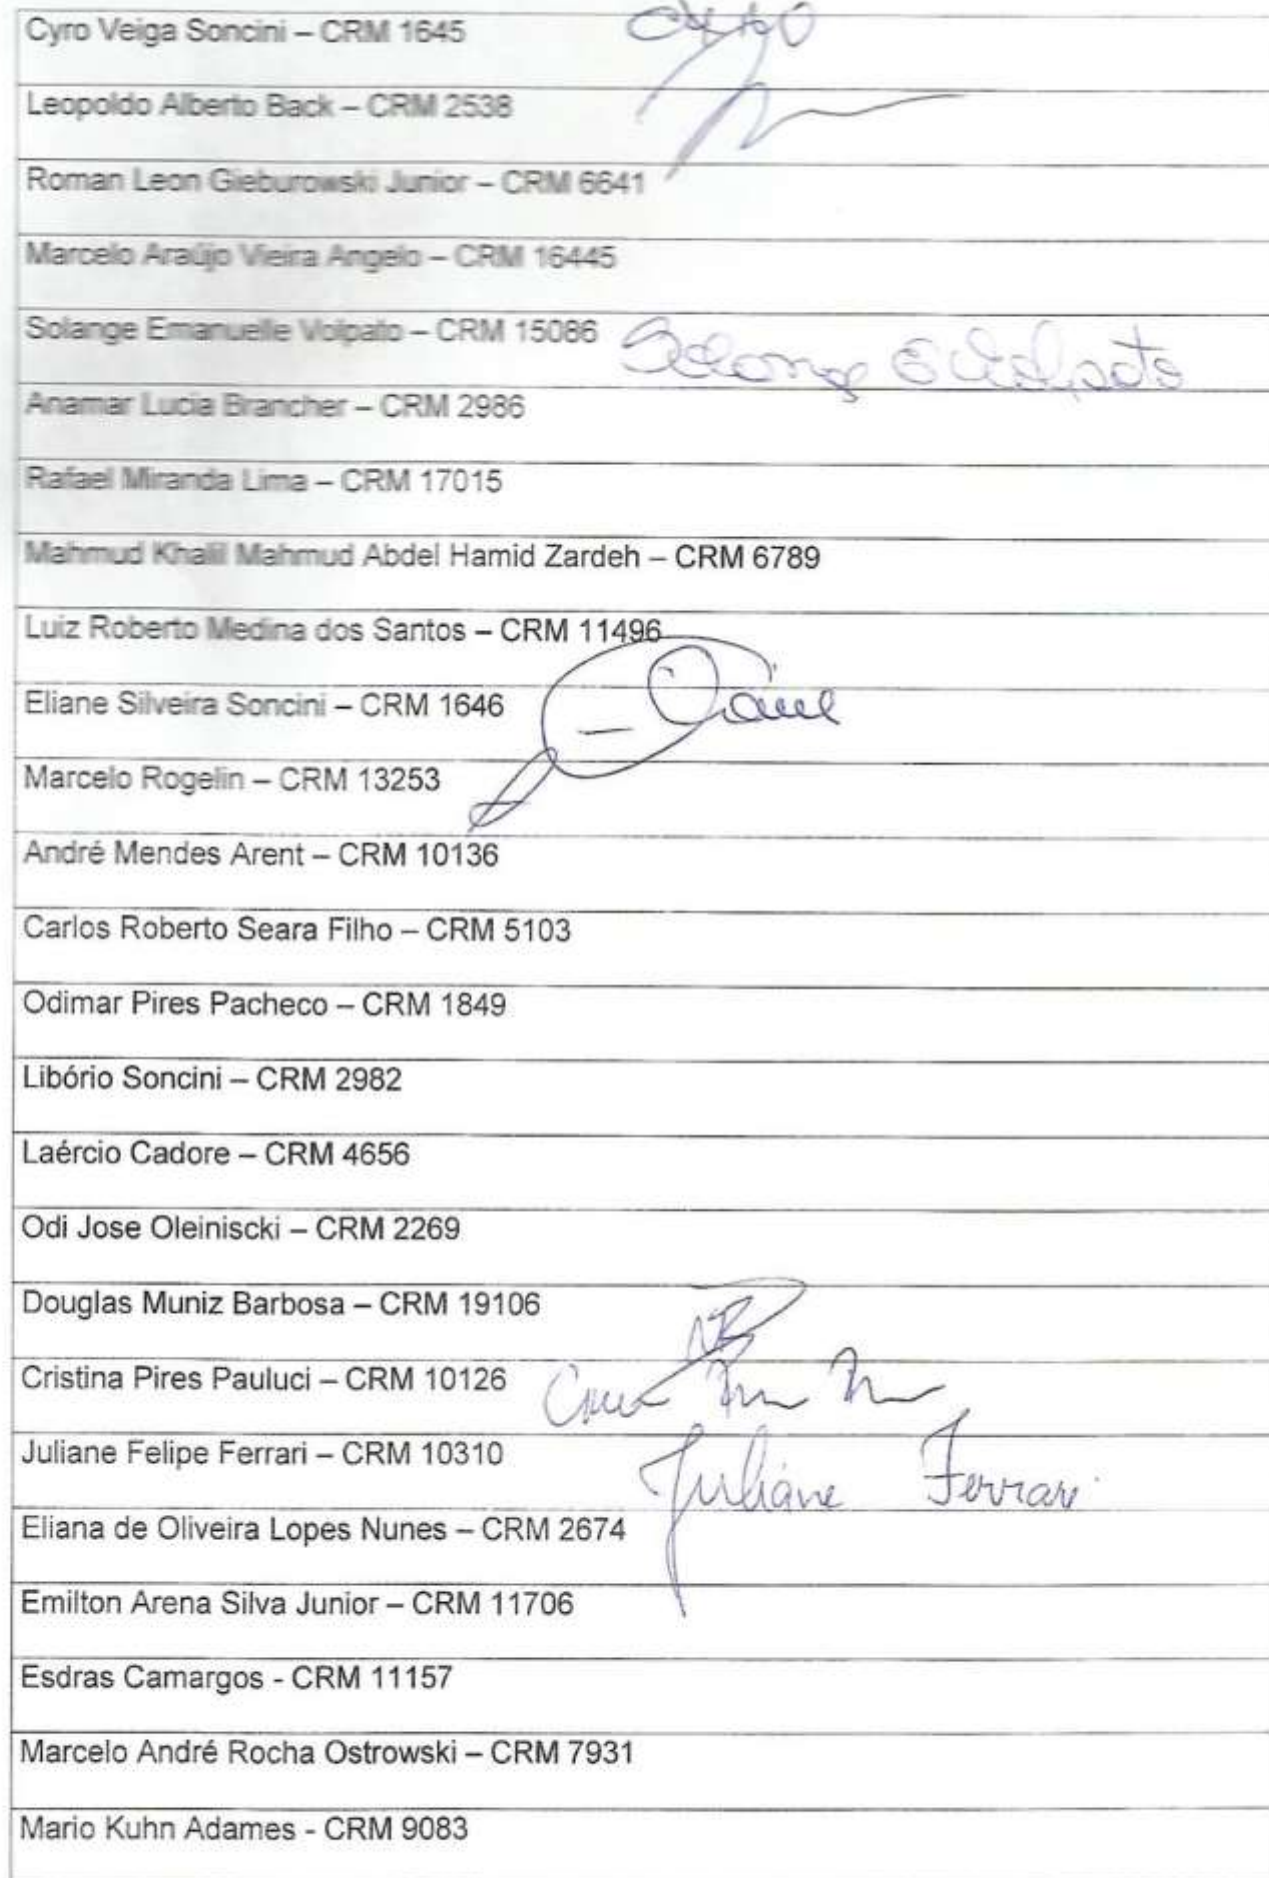 Cyro Veiga Soncini – CRM 1645
Leopoldo Alberto Back – CRM 2538
Roman Leon Gieburowski Junior – CRM 6641
Marcelo Araújo Vieira Angelo – CRM 16445
Solange Emanuelle Volpato – CRM 15086 Solange E Volpato
Anamar Lucia Brancher – CRM 2986
Rafael Miranda Lima – CRM 17015
Mahmud Khalil Mahmud Abdel Hamid Zardeh – CRM 6789
Luiz Roberto Medina dos Santos – CRM 11496
Eliane Silveira Soncini – CRM 1646
Marcelo Rogelin – CRM 13253
André Mendes Arent – CRM 10136
Carlos Roberto Seara Filho – CRM 5103
Odimar Pires Pacheco – CRM 1849
Libório Soncini – CRM 2982
Laércio Cadore – CRM 4656
Odi Jose Oleiniscki – CRM 2269
Douglas Muniz Barbosa – CRM 19106
Cristina Pires Pauluci – CRM 10126
Juliane Felipe Ferrari – CRM 10310 Juliane Ferrari
Eliana de Oliveira Lopes Nunes – CRM 2674
Emilton Arena Silva Junior – CRM 11706
Esdras Camargos - CRM 11157
Marcelo André Rocha Ostrowski – CRM 7931
Mario Kuhn Adames - CRM 9083